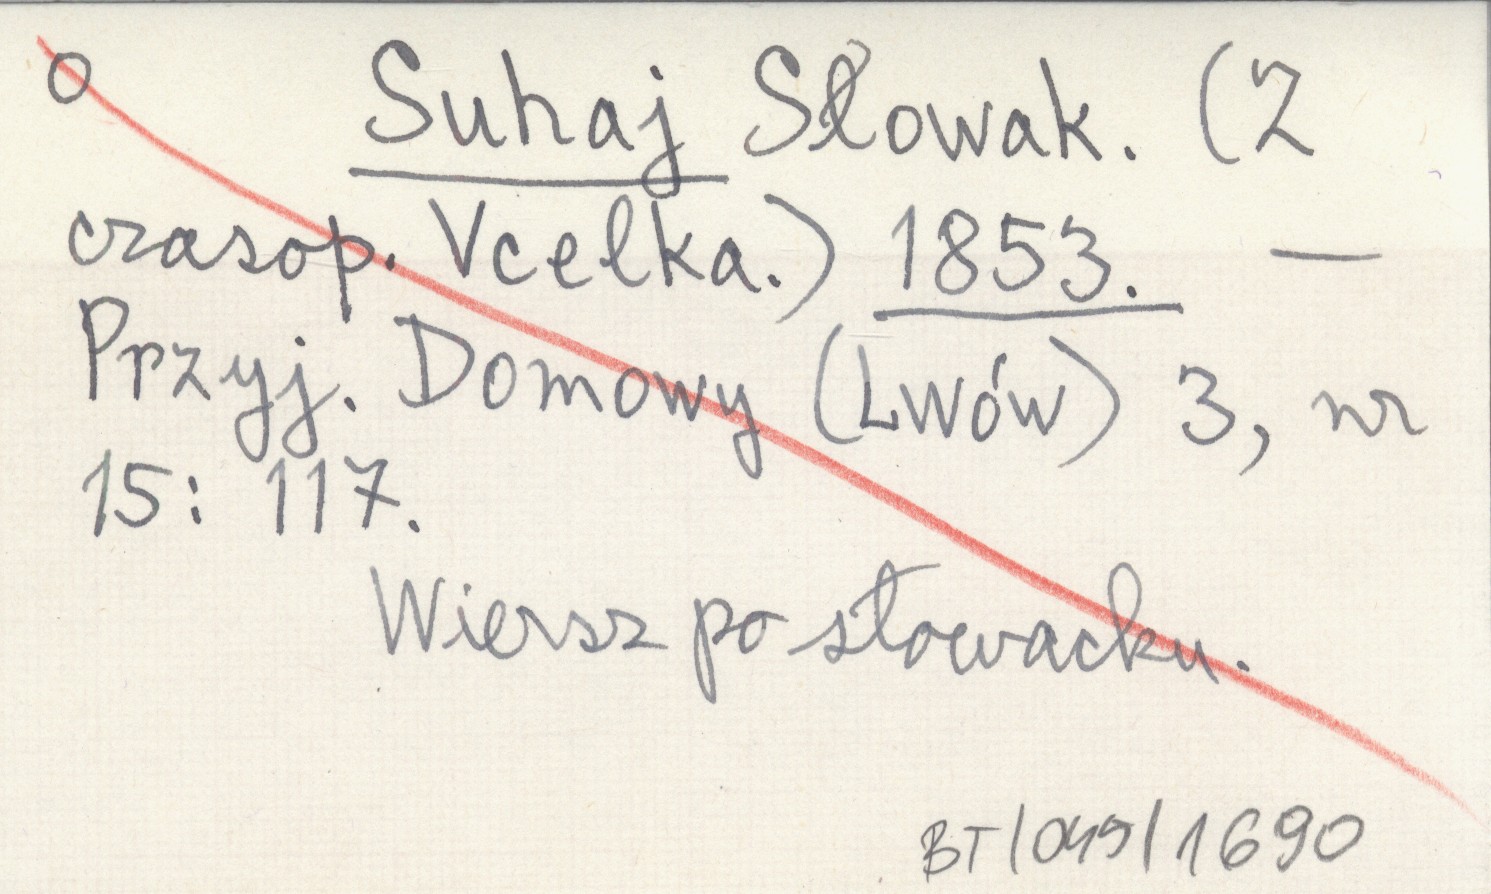 O Suhaj Słowak. (Z
czasop. Vcelka.) 1853. —
Przyj. Domowy (Lwów) 3, nr
15: 117.
Wiersz po słowacku.
BT/049/1690